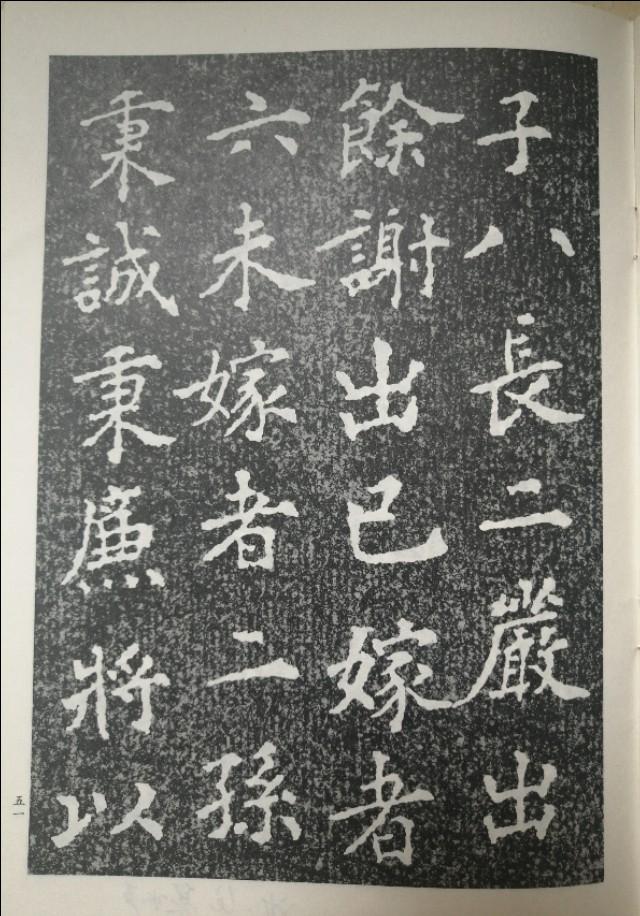 子八長二嚴出
餘謝出已嫁者
六未嫁者二孫
秉誠秉廉將以
五一